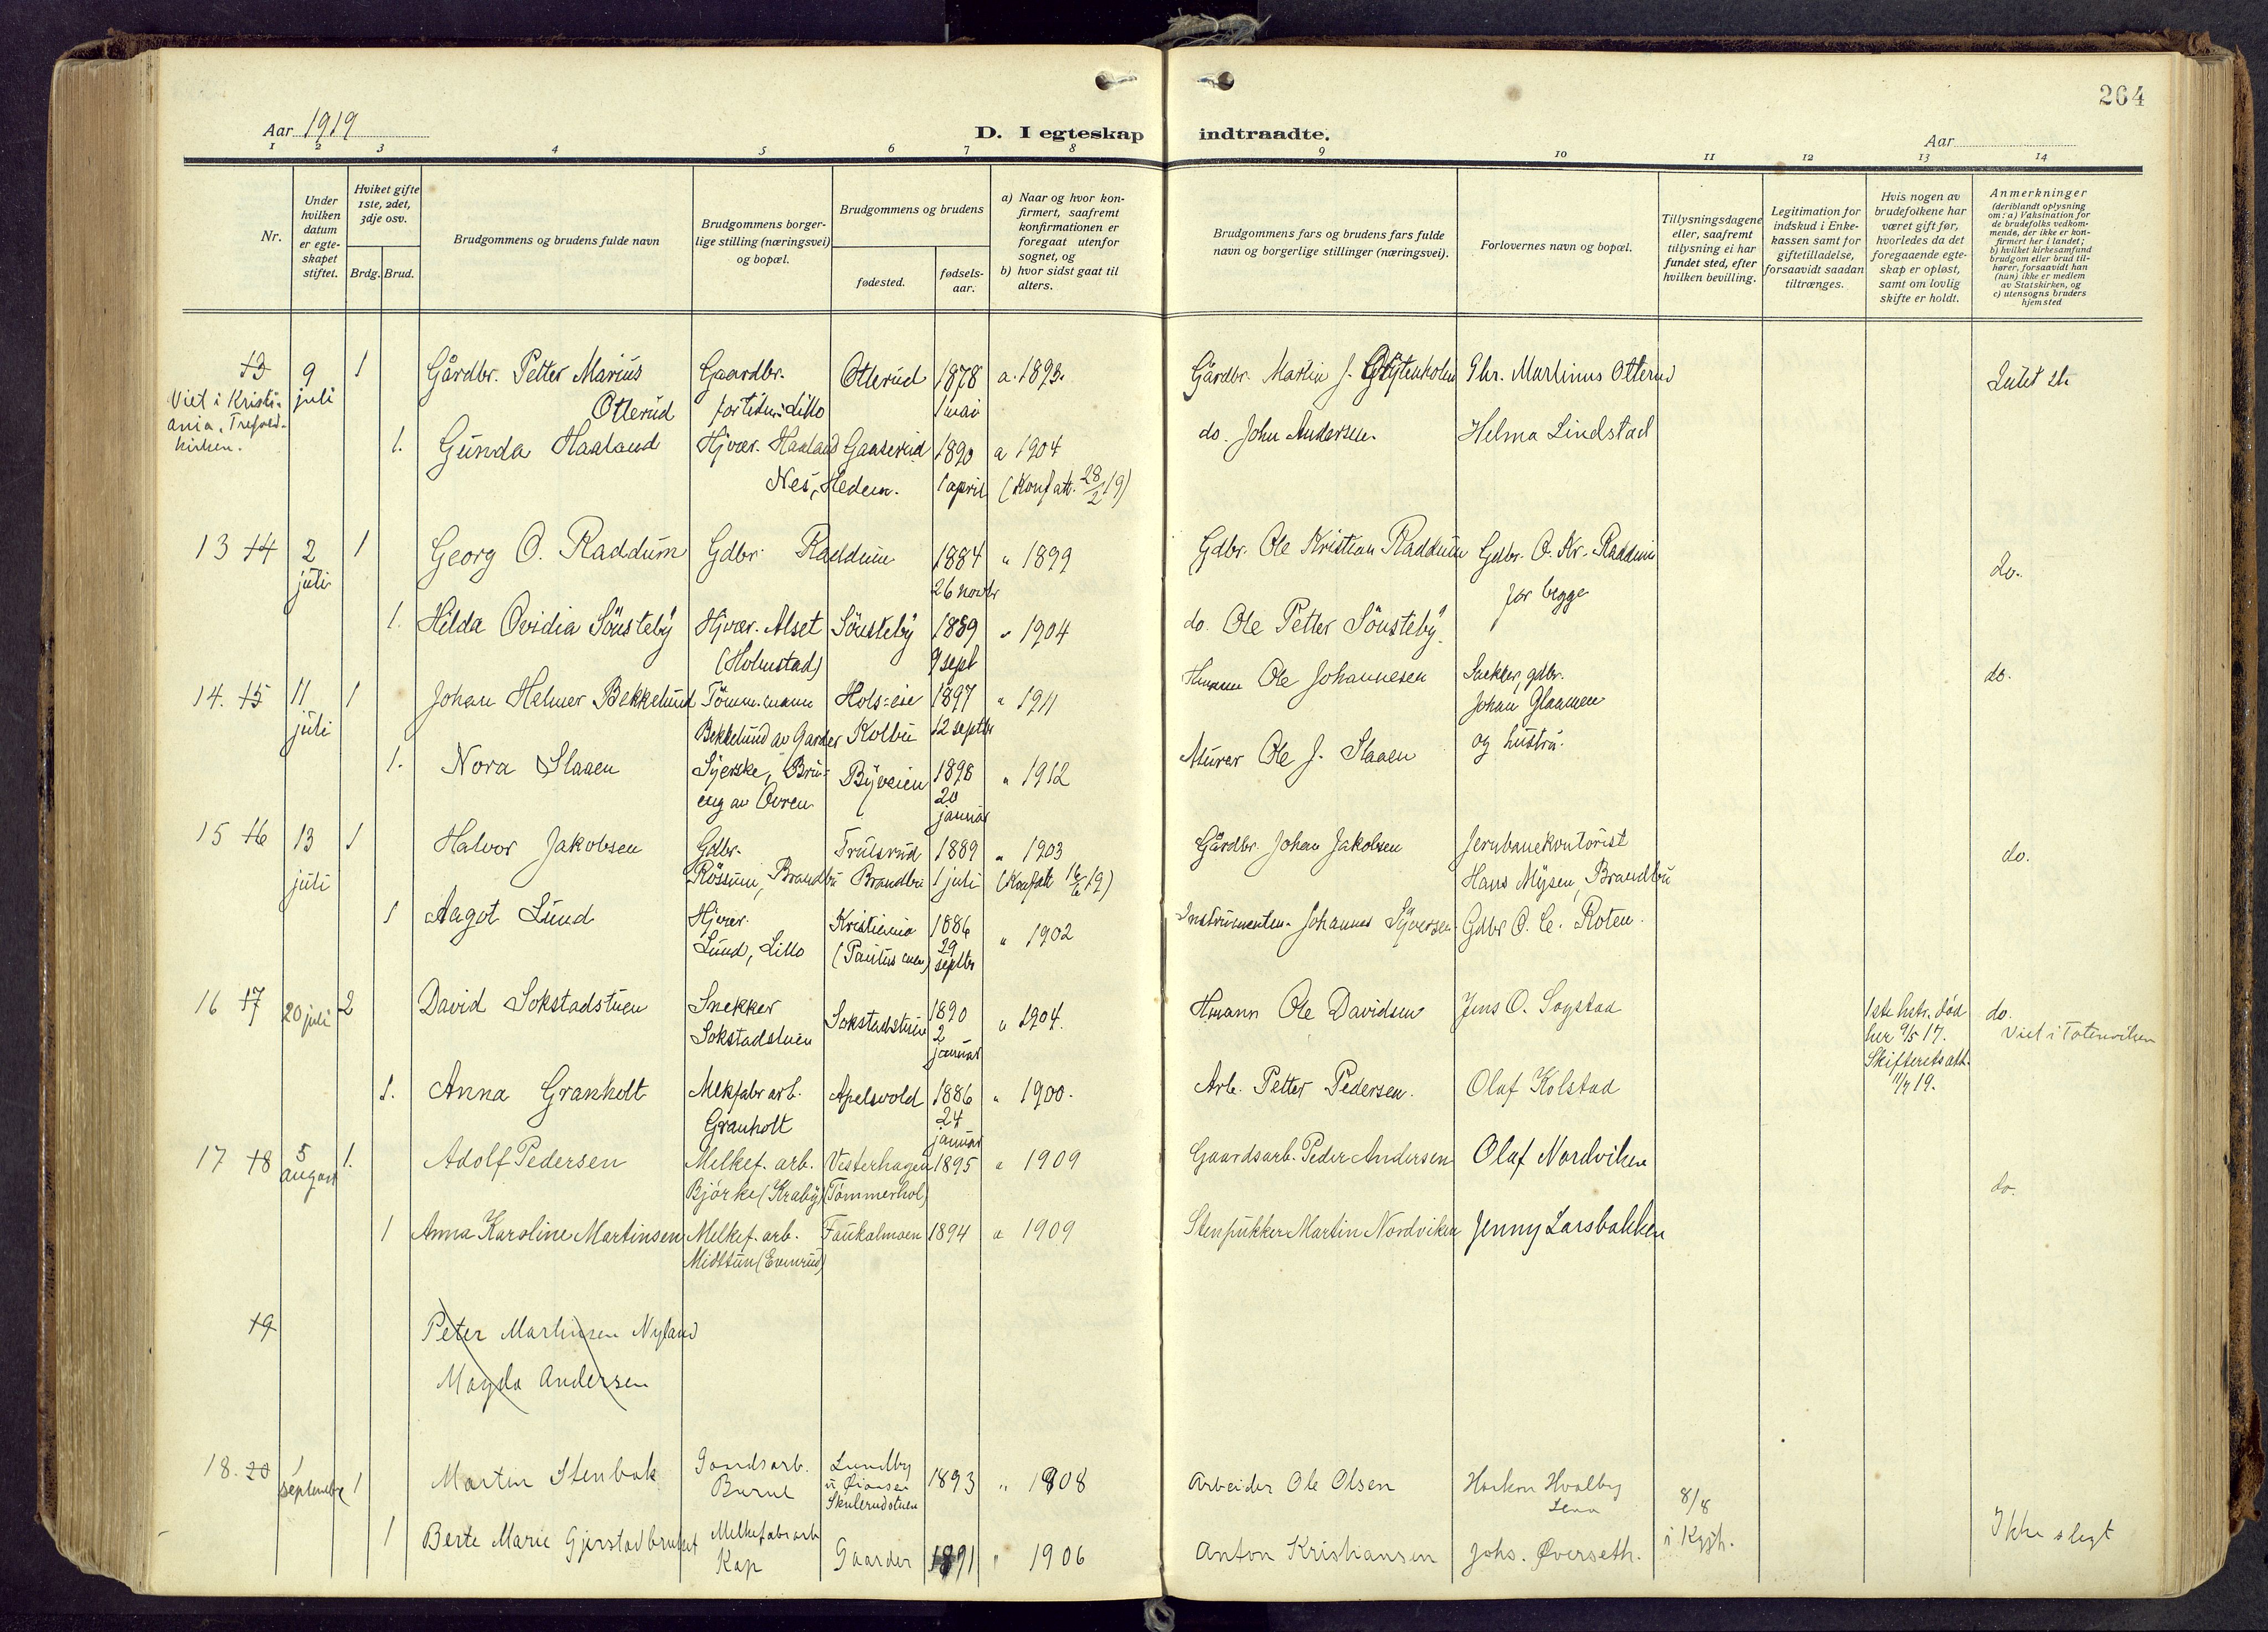 264
Aar 1919
D. I egteskap indtraadte.
Aar
1 2 3 4 5 6 7 8 9 10 11 12 13 14
Nr.
Under hvilken datum er egteskapet stiftet.
Hviket gifte 1ste, 2det, 3dje osv.
Brdg. Brud.
Brudgommens og brudens fulde navn
Brudgommens borgerlige stilling (næringsvei) og bopæl.
Brudgommens og brudens
fødested.
fødselsaar.
a) Naar og hvor konfirmert, saafremt konfirmationen er foregaat utenfor sognet, og
b) hvor sidst gaat til alters.
Brudgommens fars og brudens fars fulde navn og borgerlige stillinger (næringsvei).
Forlovernes navn og bopæl.
Tillysningsdagene eller, saafremt tillysning ei har fundet sted, efter hvilken bevilling.
Legitimation for indskud i Enkekassen samt for giftetilladelse, forsaavidt saadan tiltrænges.
Hvis nogen av brudefolkene har været gift før, hvorledes da det foregaaende egteskap er opløst, samt om lovlig skifte er holdt.
Anmerkninger (deriblandt oplysning om: a) Vaksination for de brudefolks vedkommende, der ikke er konfirmert her i landet; b) hvilket kirkesamfund brudgom eller brud tilhører, forsaavidt han (hun) ikke er medlem av Statskirken, og c) utensogns bruders hjemsted
13 9 juli 1 Gårdbr. Petter Marius Otterud Gaardbr. Lillo Otterud 1878 1 mai a. 1893. Gårdbr. Martin J. Ghr. Martinus Otterud
Viet i Kristiania, Trefold.kirken.
1. Gunda Haaland Hjvær. Haaland Nes, Hedem. Gaaserud 1890 1 april a 1904 (Konf att. 28/2 19) do. John Andersen. Helma Lindstad
13 14 2 juli 1 Georg O. Raddum Gdbr. Raddum 1884 26 novbr " 1899 Gdbr. Ole Kristian Raddum Gdbr. O. Kr. Raddum for begge do.
1. Hilda Ovidia Sönsteby Hjvær. Alset (Holmstad) Sönsteby 1889 9 sept " 1904 do. Ole Petter Sönsteby.
14. 15 11 juli 1 Johan Helmer Bekkelund Tömm.mann Bekkelund av Garder Hols=eie Kolbu 1897 12 septbr " 1911 Ole Johannesen Snekker, gdbr. Johan Glaamen og hustru. do.
1. Nora Slaaen Syerske, Brueng av Övren Byveien 1898 20 januar " 1912 Murer Ole J. Slaaen
15 16 13 juli 1 Halvor Jakobsen Gdbr. Røssum, Brandbu Trulsrud Brandbu 1889 1 juli " 1903 (Konfatt 16/6 19) Gårdbr. Johan Jakobsen Jernbanekontorist Hans Mysen, Brandbu do.
1 Aagot Lund Hjvær. Lund, Lillo Kristiania 1886 29 septbr " 1902 Johannes Syversen Gdbr O. C. Roten.
16 17 20 juli 2 David Sokstadstuen Snekker Sokstadstuen Sokstadstuen 1890 2 januar " 1904. Hmann Ole Davidsen Jens O. Sogstad 1ste hstr. död her 9/5 17. Skifteretsatt. 11/7 19. do. Viet i Totenviken
1. Anna Granholt Mekfabr arb. Granholt Apelsvold 1886 24 januar " 1900. Arb. Petter Pedersen. Olaf Kolstad
17 18 5 august 1. Adolf Pedersen Melkef. arb. Björke (Kraby) Vesterhagen (Tömmerhol) 1895 " 1909 Gaardsarb. Peder Andersen Olaf Nordviken do.
1 Anna Karoline Martinsen Melkef. arb. Midtstun (Evenrud) Faukalmoen 1894 a 1909 Stenpukker Martin Nordviken Jenny Larsbakken
19 Peter Martinsen Nyland
Magda Andersen
18. 20 1 september 1 Martin Stenbak Gaardsarb. Lundby Skulerudstuen 1893 " 1908 Arbeider Ole Olsen Haakon Hvalby Lena 8/8 i Kph. Ikke slegt
1 Berte Marie Gjerstadbruket Melkefabr arb Kap Gaarder 1891 " 1906 Anton Kristiansen Johs. Øverseth.